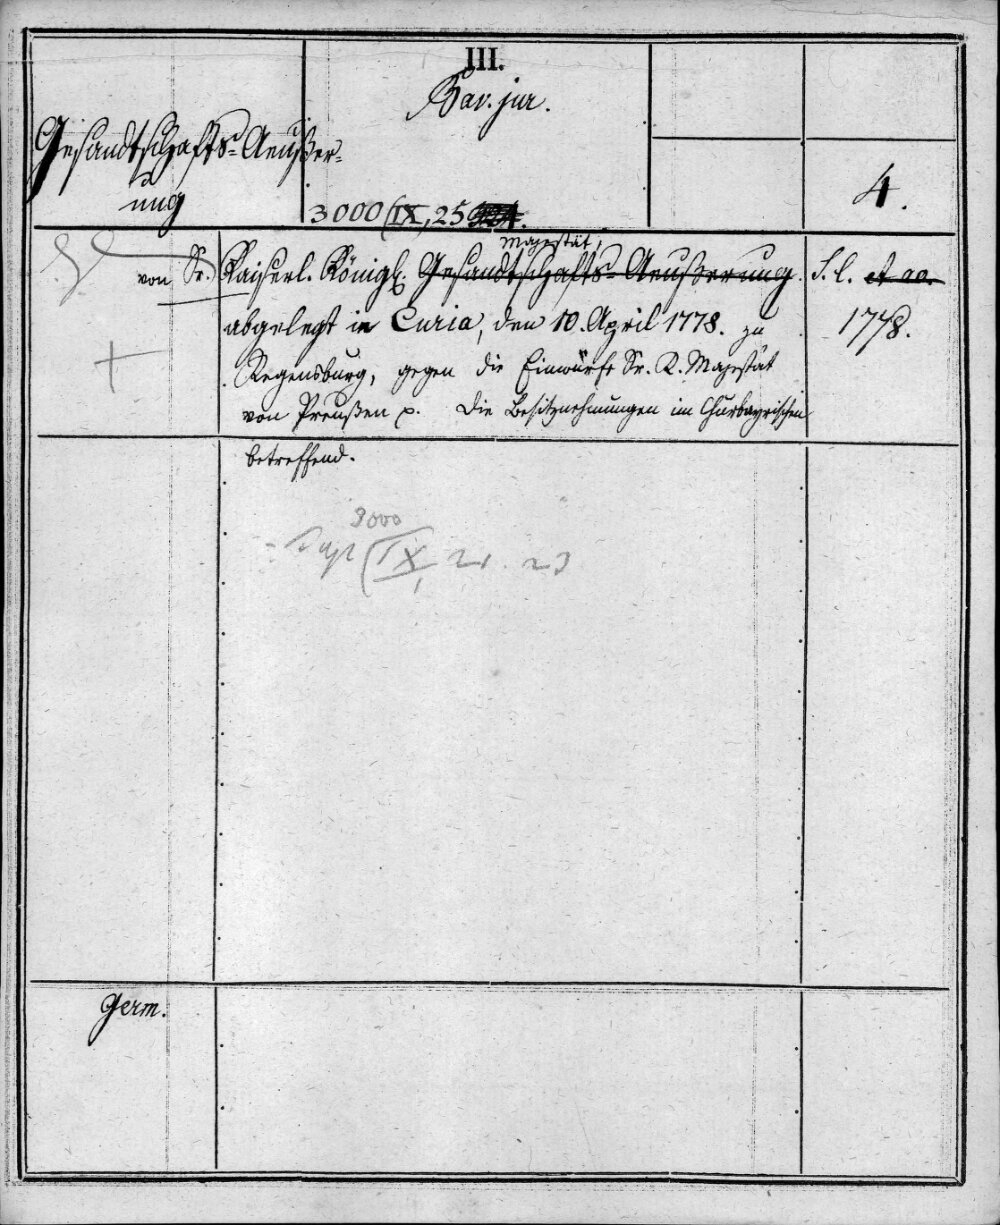 III.
Bav. jur.
Gesandtschafts-Aeußer-
ung
4.
3000/IX, 25
Majestät,
von Sr. Kaiserl. Königl. Gesandtschafts-Aeußerung. S. l. et ao.
abgelegt in Curia, den 10. April 1778. zu 1778.
Regensburg, gegen die Einwürfe Sr. K. Majestät
von Preußen p. die Besitznehmungen im Churbayrischen
betreffend.
3000
IX, 21. 23
1
Germ.